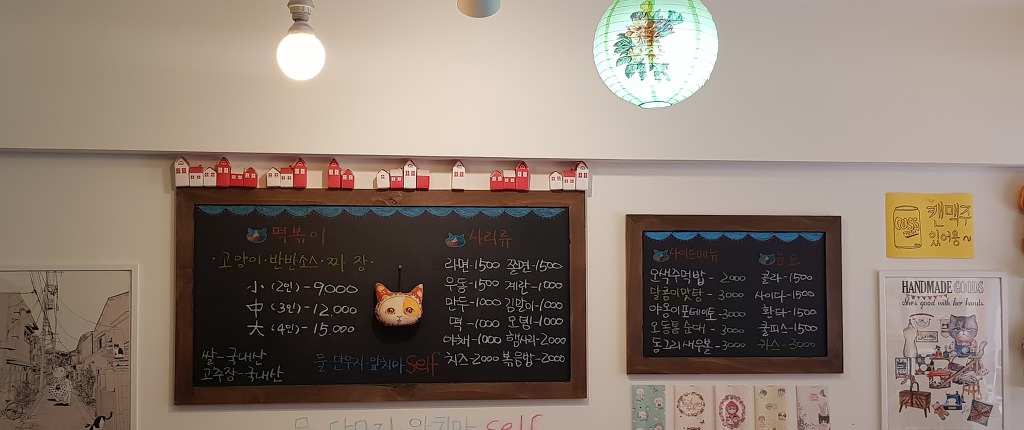 떡볶이
·고양이·반반소스·짜장·
小 (2인)-9000
中 (3인)-12000
大 (4인)-15000
쌀-국내산
고추장-국내산
물 단무지 앞치마 Self
사리류
라면-1500 쫄면-1500
우동-1500 계란-1000
만두-1000 김말이-1000
떡-1000 오뎅-1000
야채-1000 햄사리-2000
치즈-2000 볶음밥-2000
사이드메뉴
오색주먹밥-2000
달콤이맛탕-3000
야옹이포테이토-3000
오동통순대-3000
동그리새우볼-3000
음료
콜라-1500
사이다-1500
환타-1500
쿨피스-1500
카스-3000
캔맥주
있어용~
HANDMADE GOODS
She's good with her hands.
물 단무지 앞치마 self